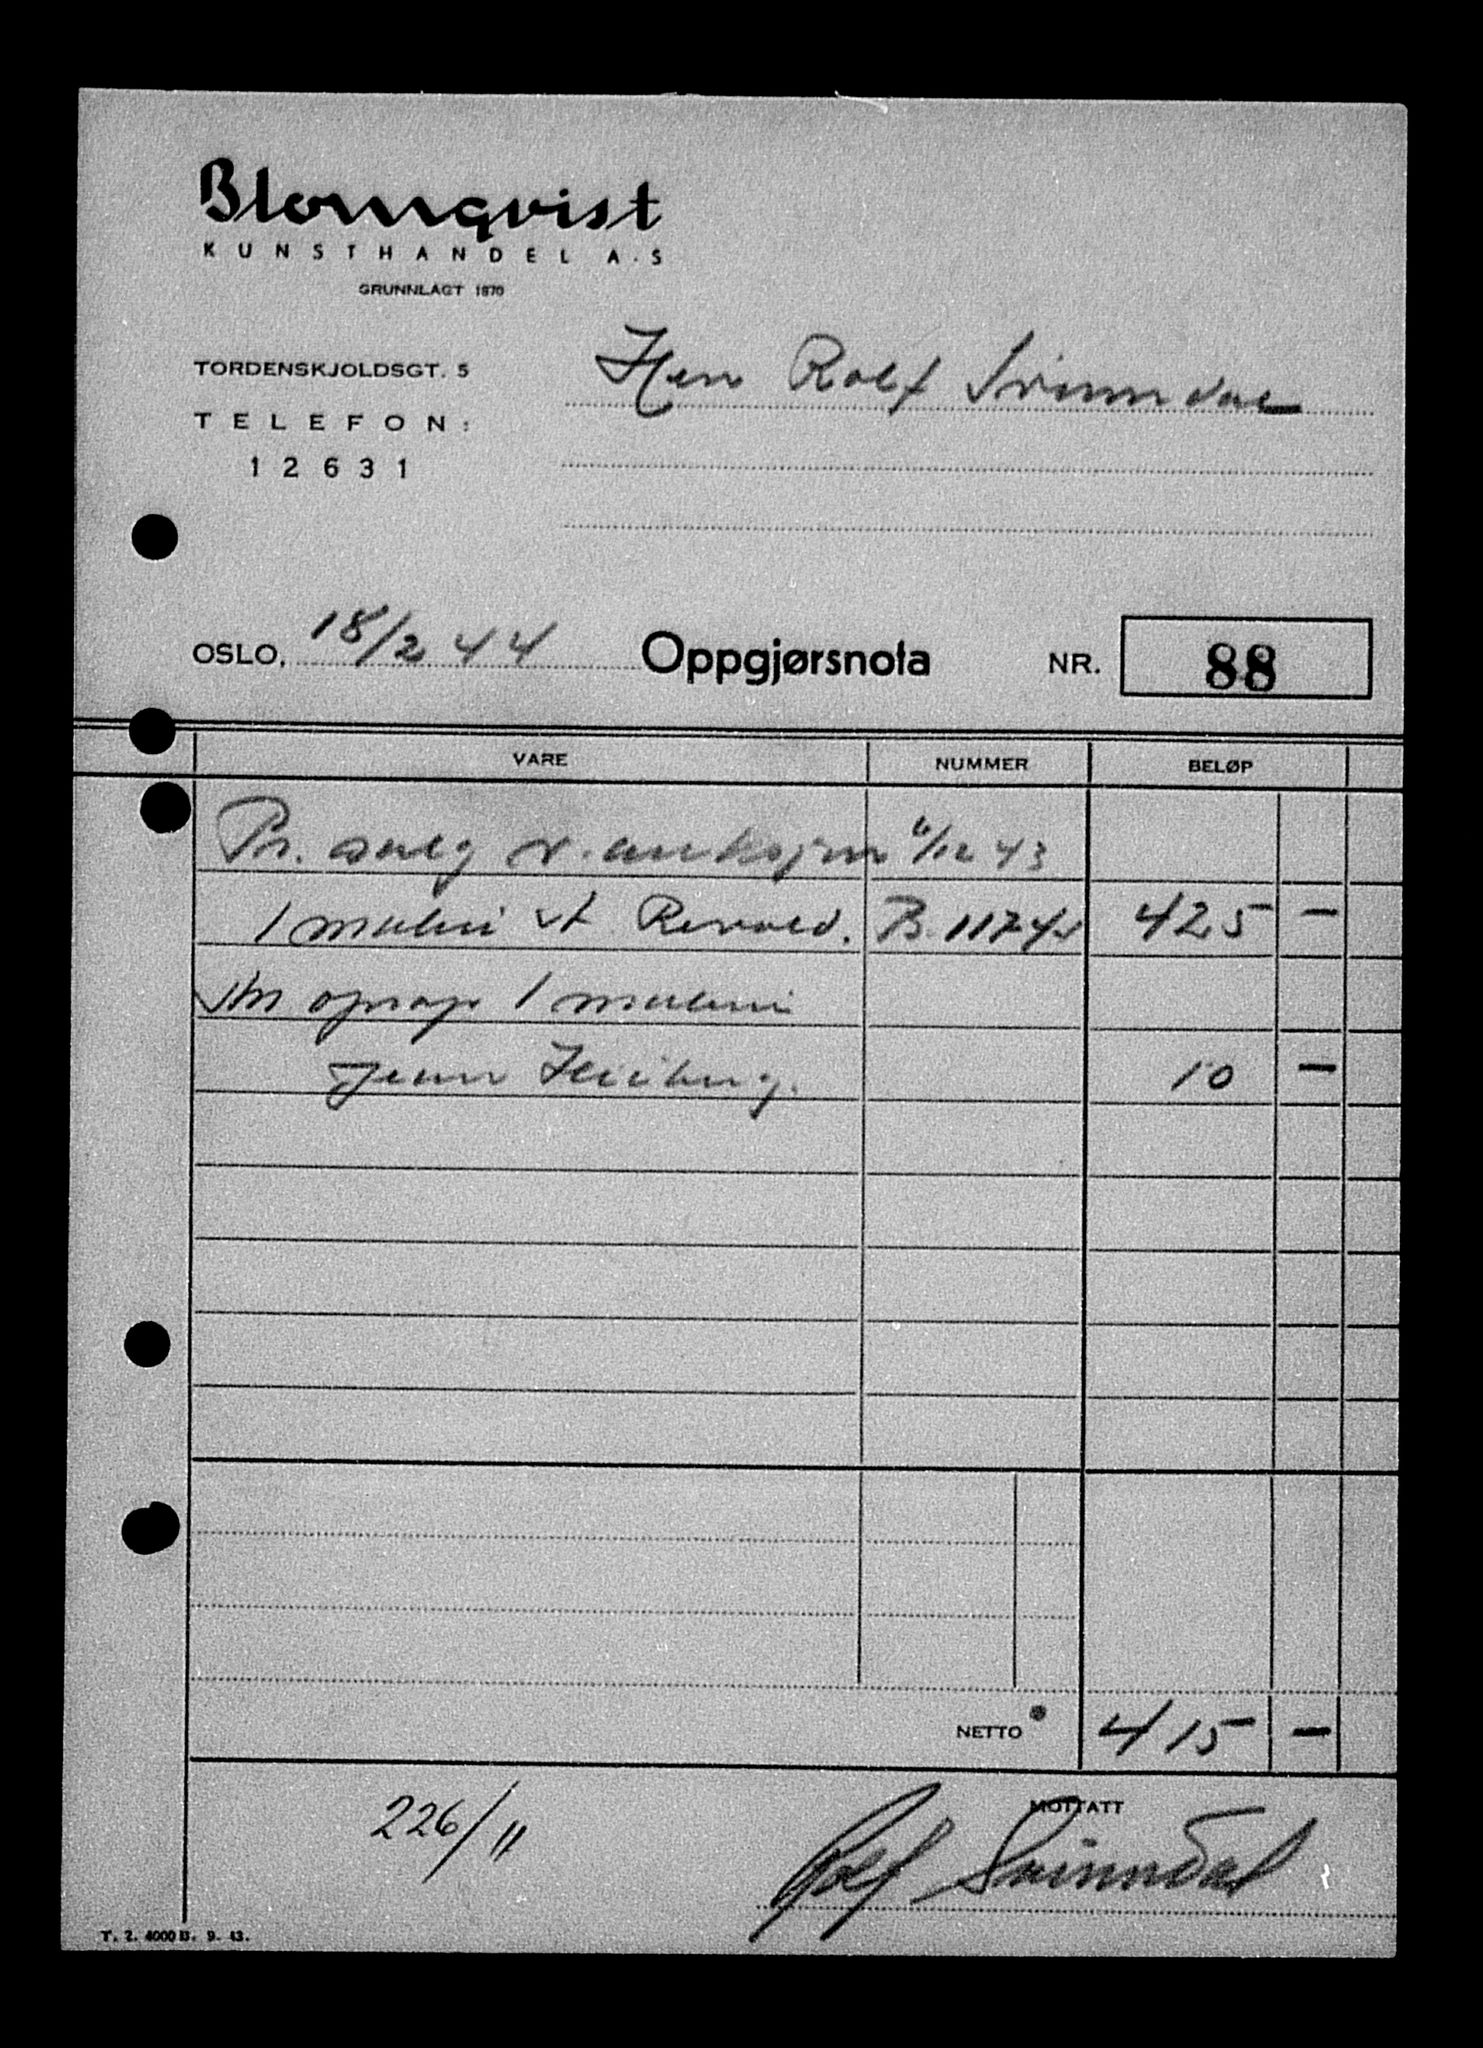 Blomqvist
KUNSTHANDEL A.S
GRUNNLAGT 1870
TORDENSKJOLDSGT. 5
TELEFON:
12631
Herr Rolf Svinndal
OSLO, 18/2 44 Oppgjørsnota NR. 88
VARE NUMMER BELØP
Pr. salg v. auksjon 6/12 43
1 maleri av Revold. B. 11742 425 -
1 maleri
Jean Heiberg. 10 -
NETTO 415 -
226/11
MOTTATT
Rolf Svinndal
T. 2. 4000 B. 9. 43.